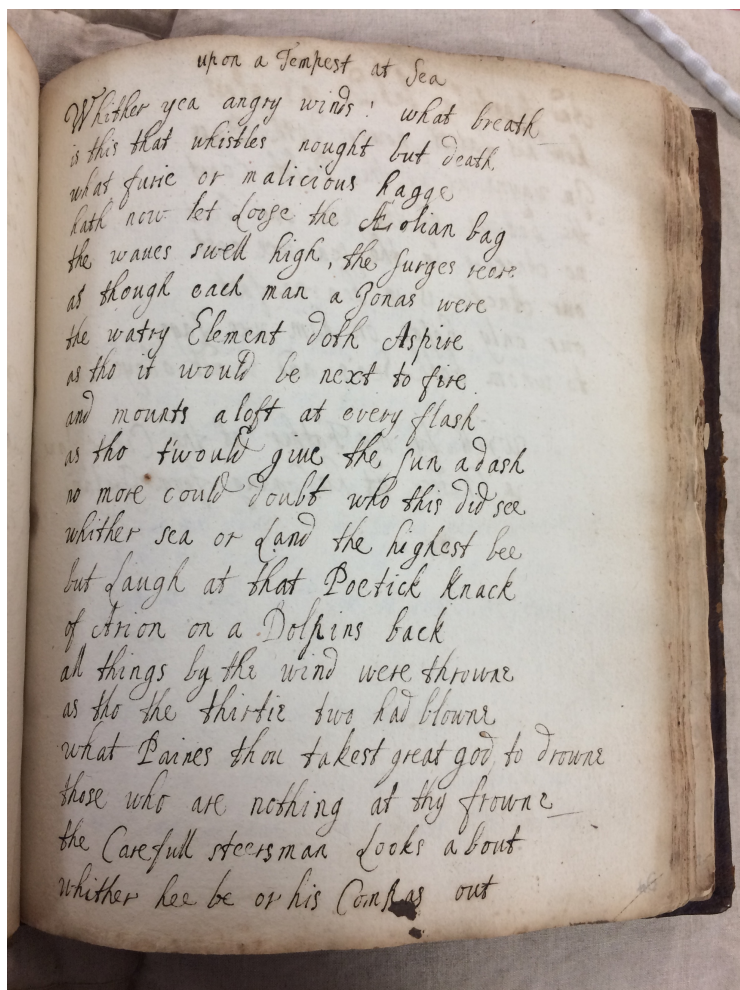 upon a Tempest at Sea
Whither yea angry winds! what breath
is this that whistles nought but death
what furie or malicious hagge
hath now let Loose the Æolian bag
the waves swell high, the surges rore
as though each man a Jonas were
the watry Element doth Aspire
as tho it would be next to fire
and mounts aloft at every flash
as tho t'would give the sun a dash
no more could doubt who this did see
whither sea or Land the highest bee
but Laugh at that Poetick knack
of Arion on a Dolpins back
all things by the wind were throwne
as tho the thirtie two had blowne
what Paines thou takest great god, to drowne
those who are nothing at thy frowne
the Carefull steersman Looks about
whither hee be or his Compas out